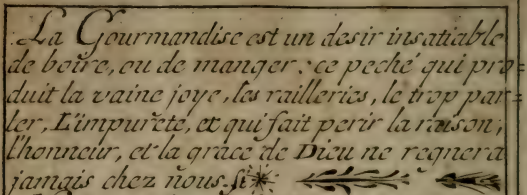 La Gourmandise est un desir insatiable
de boire, ou de manger : ce peché qui pro=
duit la vaine joye, les railleries, le trop par=
ler, L'impureté, et qui fait perir la raison,
l'honneur, et la grace de Dieu ne regnera
jamais chez nous. si